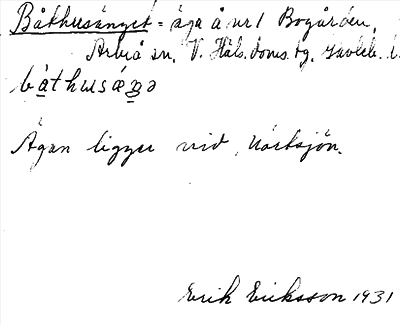 Båthusänget = äga å nr 1 Bogården,
Arbrå sn, V. Häls. doms. tg. Gävleb. l.
båthusǽŋə
Ägan ligger vid Norrsjön.
Erik Eriksson 1931